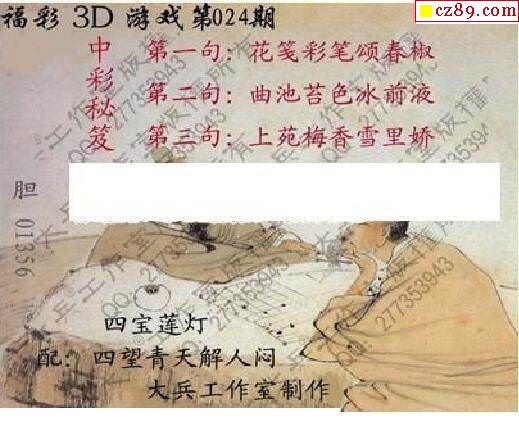 cz89.com
福彩 3D 游戏第024期
中彩秘笈
第一句：花笺彩笔颂春椒
第二句：曲池苔色冰前液
第三句：上苑梅香雪里娇
胆 01356
四宝莲灯
配：四望青天解人闷
大兵工作室制作
大兵工作室版权所有
QQ：277353943